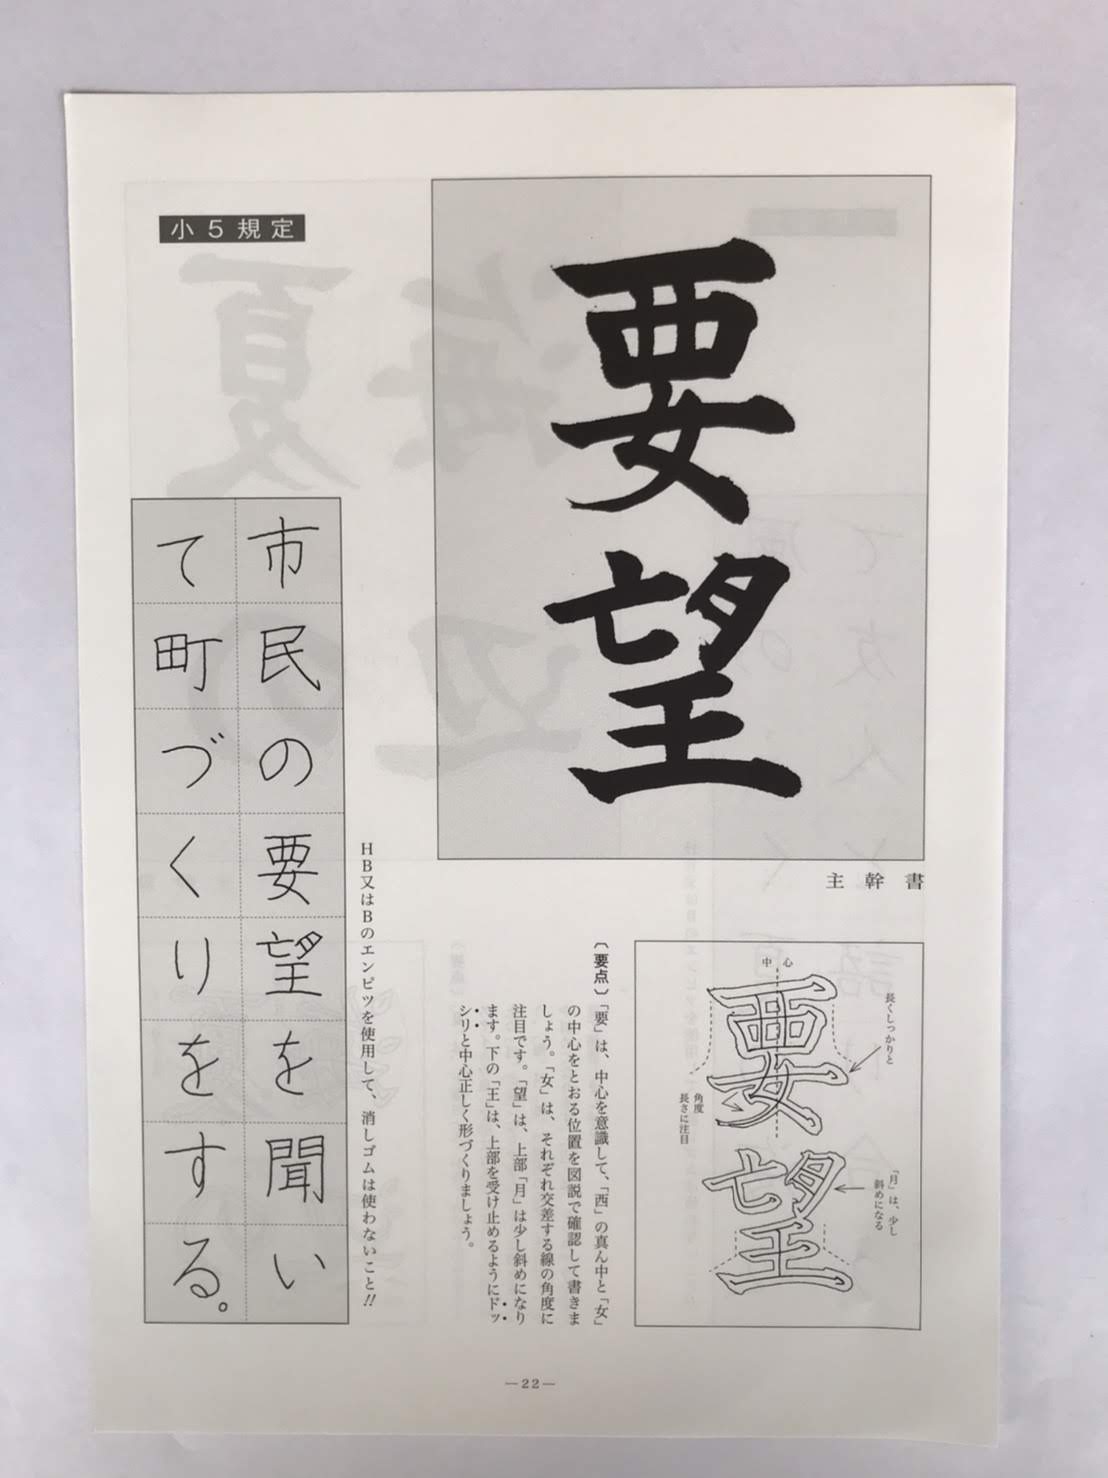 小5規定
要望
主幹書
中心
長くしっかりと
角度
長さに注目
「月」は、少し
斜めになる
〔要点〕「要」は、中心を意識して、「西」の真ん中と「女」
の中心をとおる位置を図説で確認して書きま
しょう。「女」は、それぞれ交差する線の角度に
注目です。「望」は、上部「月」は少し斜めになり
ます。下の「王」は、上部を受け止めるようにドッ
シリと中心正しく形づくりましょう。
HB又はBのエンピツを使用して、消しゴムは使わないこと!!
市民の要望を聞い
て町づくりをする。
—22—